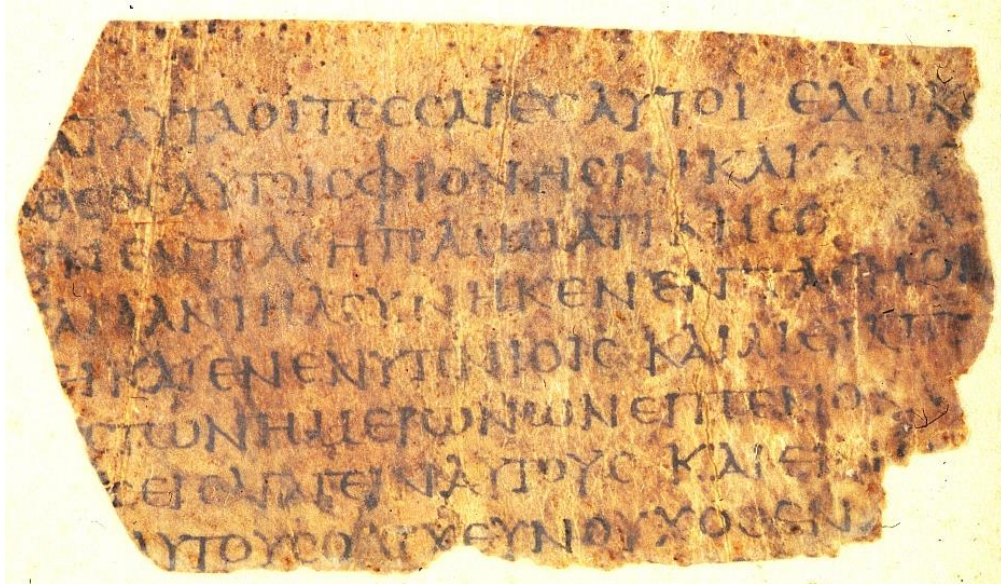 ΑΤΑΥΤΑΟΙΤΕϹϹΑΡΕϹΑΥΤΟΙ ΕΔΩΚΕ
ΘΕΟϹΑΥΤΟΙϹΦΡΟΝΗϹΙΝΚΑΙϹΥΝΕ
ΙΝΕΝΠΑϹΗΓΡΑΜΜΑΤΙΚΗϹΟ Α
ΑΙΔΑΝΙΗΛϹΥΝΗΚΕΝΕΝΠΑϹΗΟΡ
ΕΙΚΑΙΕΝΕΝΥΠΝΙΟΙϹ ΚΑΙΜΕΤ
ϹΤΩΝΗΜΕΡΩΝΩΝΕΙΠΕΝΟ
ϹΕΙϹΑΓΑΓΕΙΝΑΥΤΟΥϹ ΚΑΙΕΙ
ΑΥΤΟΥϹΟΑΡΧΕΥΝΟΥΧΟϹΕΝ